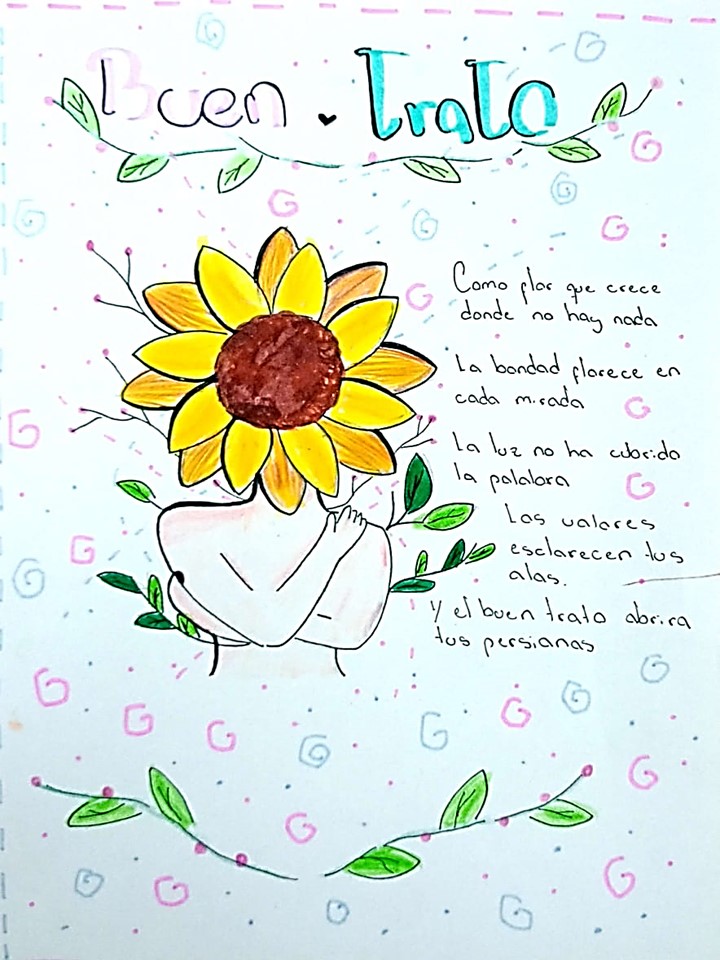 Buen trato
Como flor que crece
donde no hay nada
La bondad florece en
cada mirada
La luz no ha cubrido
la palabra
Los valores
esclarecen tus
alas.
Y el buen trato abrira
tus persianas